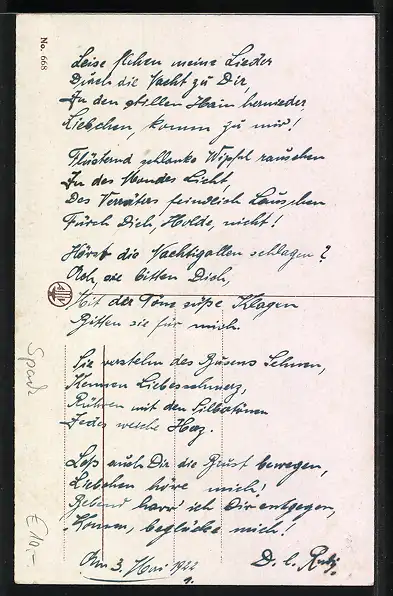 No. 668
Leise flehen meine Lieder
Durch die Nacht zu Dir,
In den stillen Hain hernieder
Liebchen, komm zu mir!
Flüsternd schlanke Wipfel rauschen
In des Mondes Licht,
Des Verräters feindlich Lauschen
Fürch Dich, Holde, nicht!
Hörst die Nachtigallen schlagen?
Ach, sie bitten Dich,
Mit der Töne süße Klagen
Bitten sie für mich.
Sie verstehn des Busens Sehnen,
Kennen Liebesschmerz,
Rühren mit den Silbertönen
Jedes weiche Herz.
Laß auch Dir die Brust bewegen,
Liebchen höre mich!
Bebend harr' ich Dir entgegen,
Komm, beglücke mich!
Am 3. Mai 1922
D. l.
€ 10,-